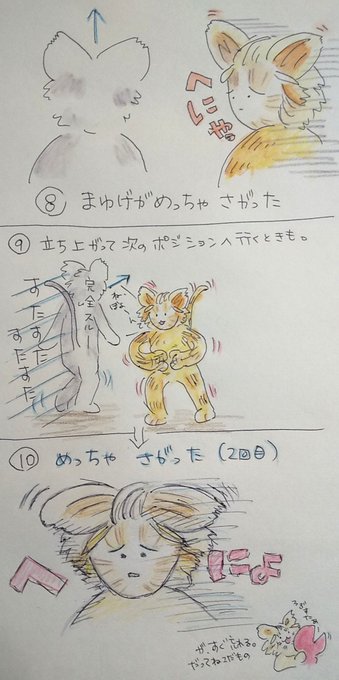 へにゃっ
⑧ まゆげがめっちゃ さがった
⑨ 立ち上がって次の ポジションへ行くときも。
完全スルー
すたすたすたすた
⑩ めっちゃ さがった (2回目)
へにょ
が、すぐ忘れる。
だってねこだもの